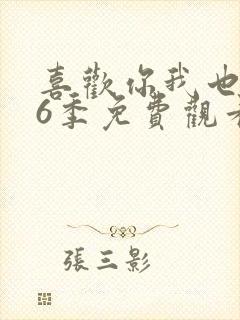 喜歡你我也
6季免費觀
張三影